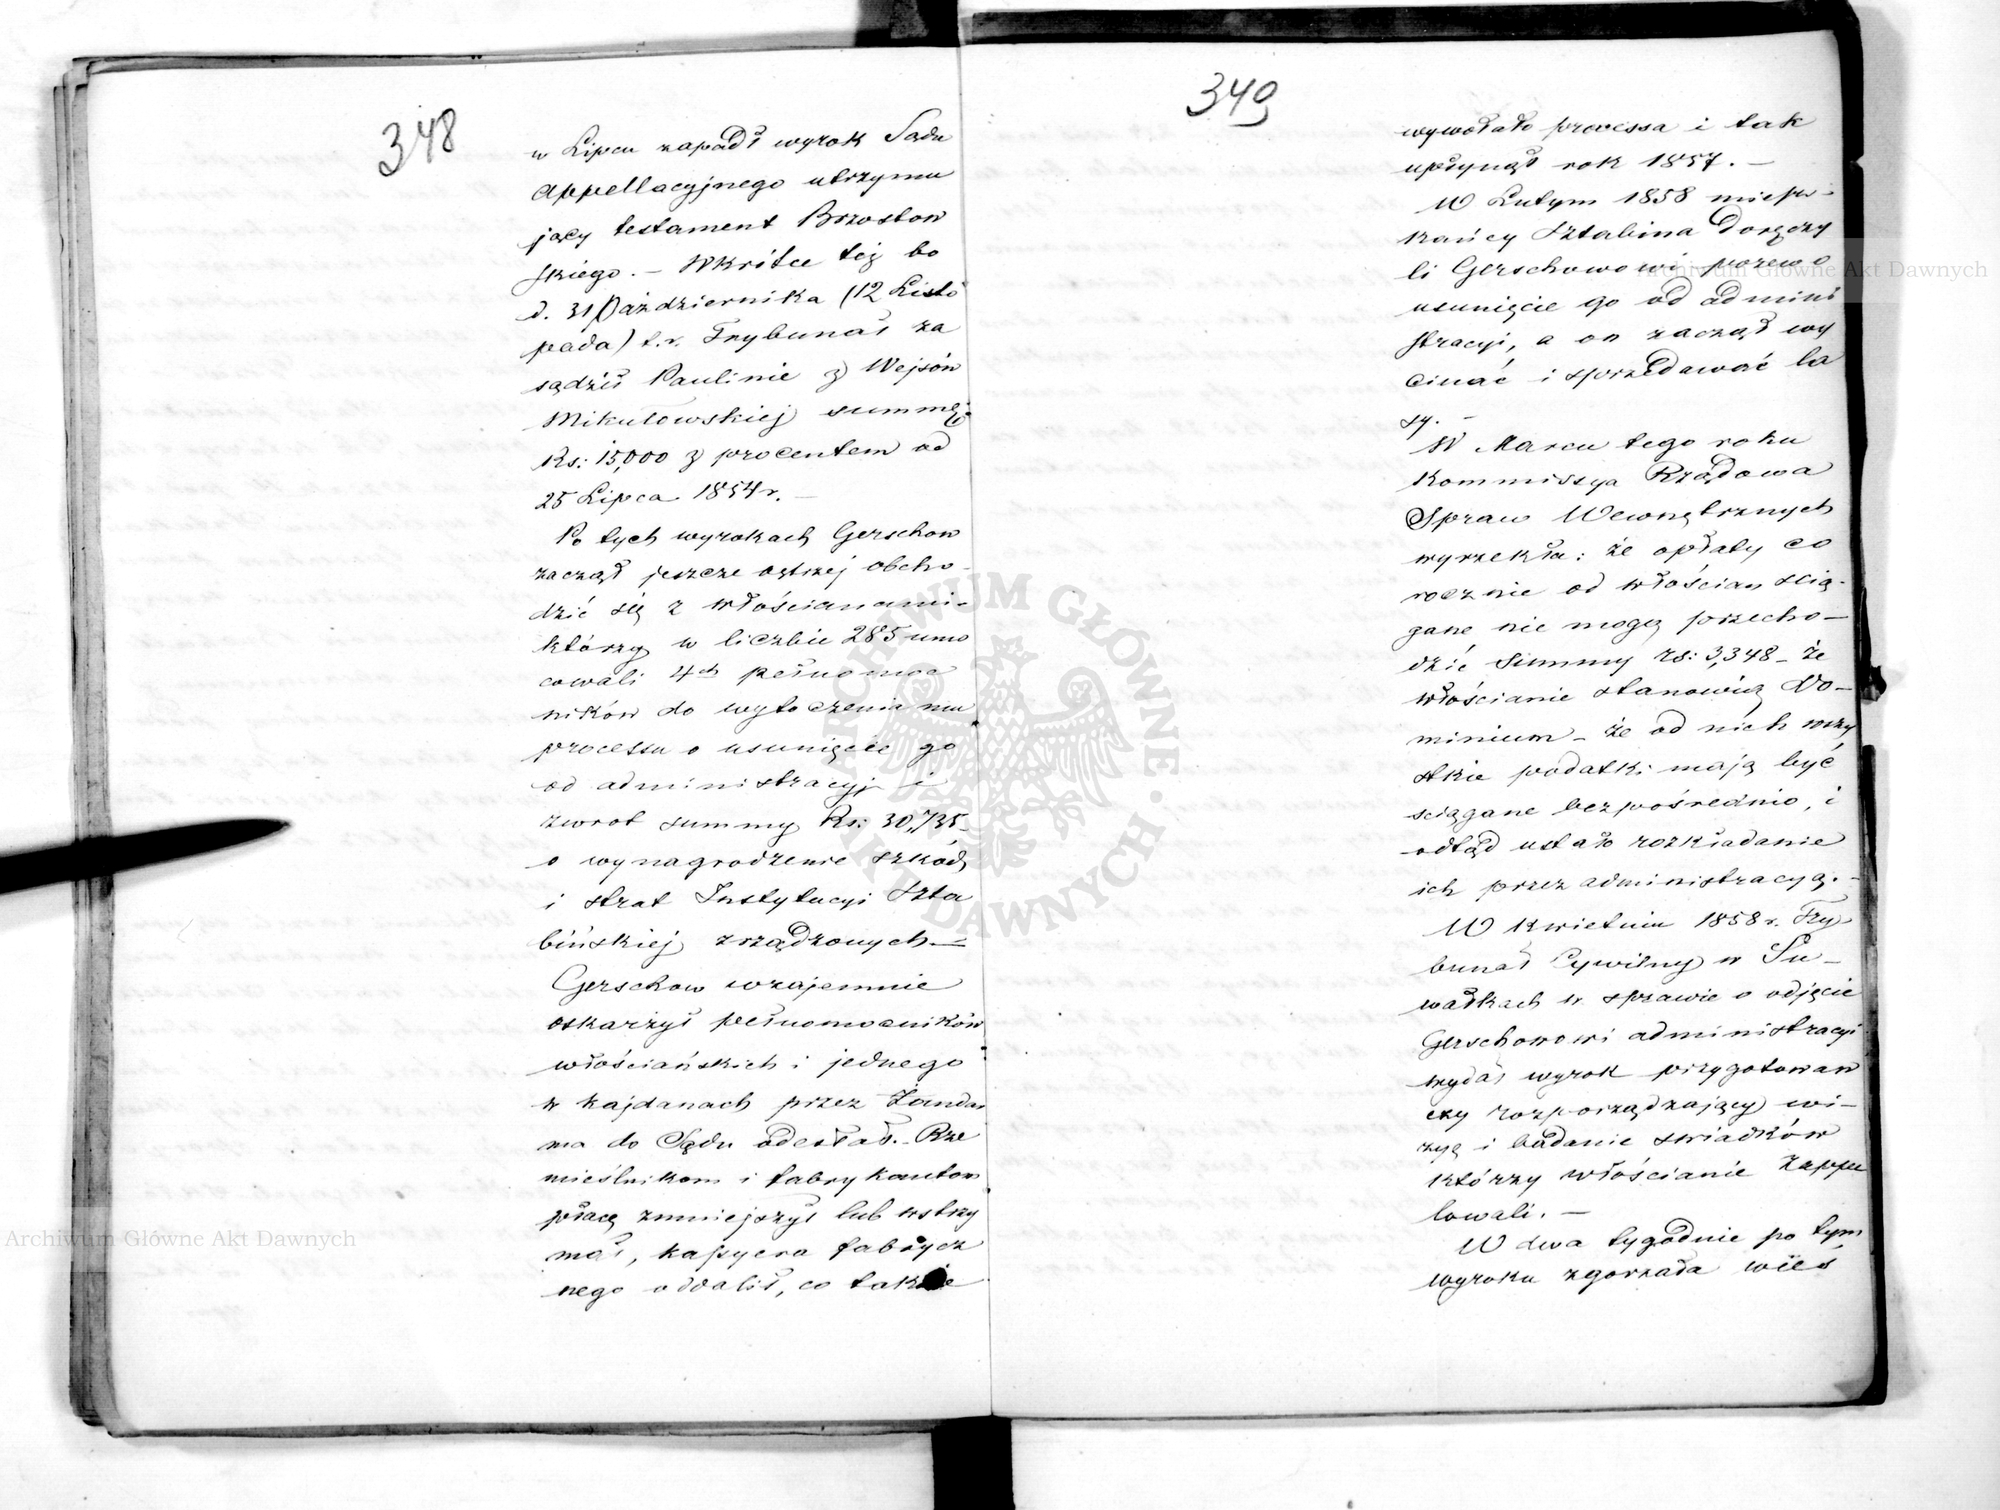 348
w Lipcu zapadł wyrok Sądu
Appellacyjnego utrzymu
jący testament Brzostow
skiego. – Wkrótce też bo
d. 31 Października (12 Listo
pada) t. r. Trybunał za
sądził Paulinie z Wejsów
Mikułowskiej summę
Rs: 15,000 z procentem od
25 Lipca 1854 r. –
Po tych wyrokach Gerschow
zaczął jeszcze ostrzej obcho-
dzić się z włościanami-
którzy w liczbie 285 umo
cowali 4ch pełnomoc
ników do wytoczenia mu
processu o usunięcie go
od administracyi i
zwrot summy Rs: 30,735-
o wynagrodzenie szkód
i strat Instytucyi Szta
bińskiej zrządzonych –
Gerschow wzajemnie
oskarżył pełnomocników
włościańskich i jednego
w kajdanach przez Żandar
ma do Sądu odesłał. – Rze
mieślnikom i fabrykantom
płacę zmniejszył lub wstrzy
mał, kassyera fabrycz
nego oddalił, co także
349
wywołało processa i tak
upłynął rok 1857. –
W Lutym 1858 miesz-
kańcy Sztabina doręczy
li Gerschowowi pozew o
usunięcie go od admini
stracyi, a on zaczął wy
cinać i sprzedawać la
sy. –
W Marcu tego roku
Kommissya Rządowa
Spraw Wewnętrznych
wyrzekła: że opłaty co
rocznie od włościan scią-
gane nie mogą przecho–
dzić Summy rs: 3,348 – że
włościanie stanowią Do–
minium – że od nich wszy
stkie podatki mają być
sciągane bezpośrednio, i
odtąd ustało rozkładanie
ich przez administracyą. –
W Kwietniu 1858 r. Try-
bunał Cywilny w Su–
wałkach w sprawie o odjęcie
Gerschowowi administracyi
wydał wyrok przygotowaw
czy rozporządzający wi–
zyą i badanie swiadków
którzy włościanie zappel
lowali. –
W dwa tygodnie po tym
wyroku zgorzała wieś
Archiwum Główne Akt Dawnych
Archiwum Główne Akt Dawnych
ARCHIWUM GŁÓWNE AKT DAWNYCH